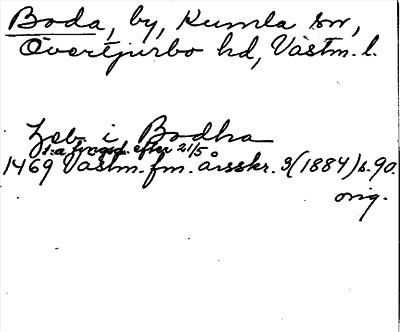 Boda, by, Kumla sn,
Övertjurbo hd, Västm. l.
Jeb i Bodha
1:a fregd. efter 21/5
1469 Västm. fm. årsskr. 3 (1884) s. 90.
orig.